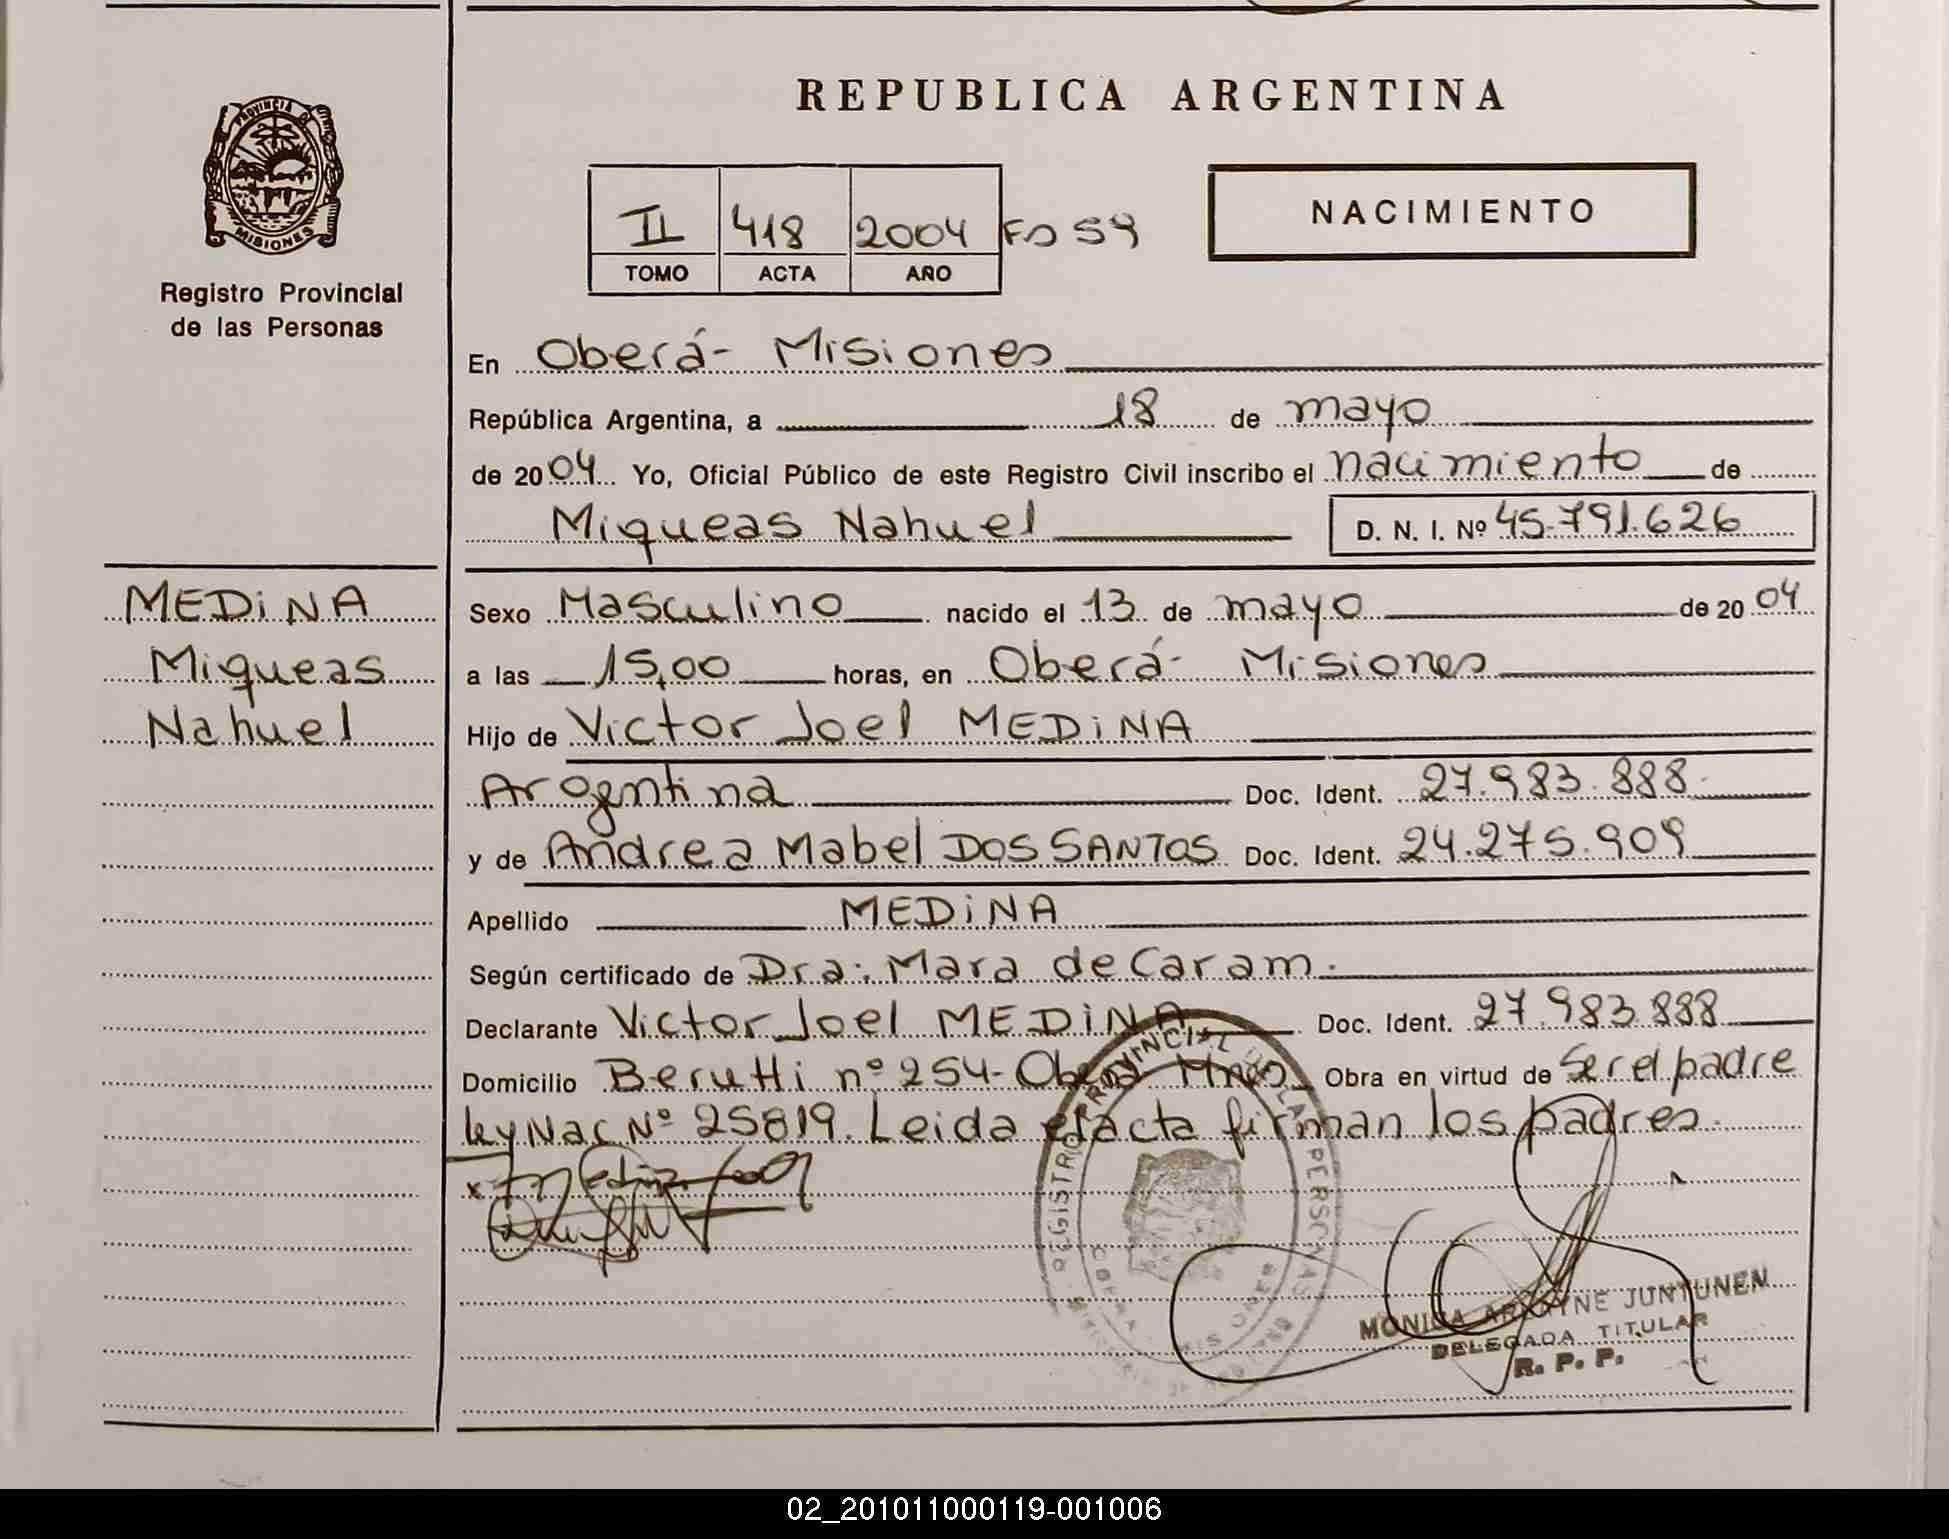 REPUBLICA ARGENTINA
PROVINCIA DE MISIONES
Registro Provincial
de las Personas
II 418 2004 Fo 54
TOMO ACTA AÑO
NACIMIENTO
En Oberá - Misiones
República Argentina, a 18 de mayo
de 2004 Yo, Oficial Público de este Registro Civil inscribo el nacimiento de
Miqueas Nahuel D. N. I. Nº 45.791.626
MEDiNA
Miqueas
Nahuel
Sexo Masculino nacido el 13 de mayo de 2004
a las 15,00 horas, en Oberá - Misiones
Hijo de Victor Joel MEDiNA
Argentina Doc. Ident. 27.983.888
y de Andrea Mabel DOS SANTOS Doc. Ident. 24.275.909
Apellido MEDiNA
Según certificado de Dra: Mara de Caram.
Declarante Victor Joel MEDiNA Doc. Ident. 27.983.888
Domicilio Berutti nº 254 - Oberá Mnes Obra en virtud de Ser el padre
ley Nac Nº 25819. Leida el acta firman los padres.
REGISTRO PROVINCIAL DE LAS PERSONAS
OBERA MISIONES
MONICA JUNTUNEN
DELEGADA TITULAR
R. P. P.
02_201011000119-001006